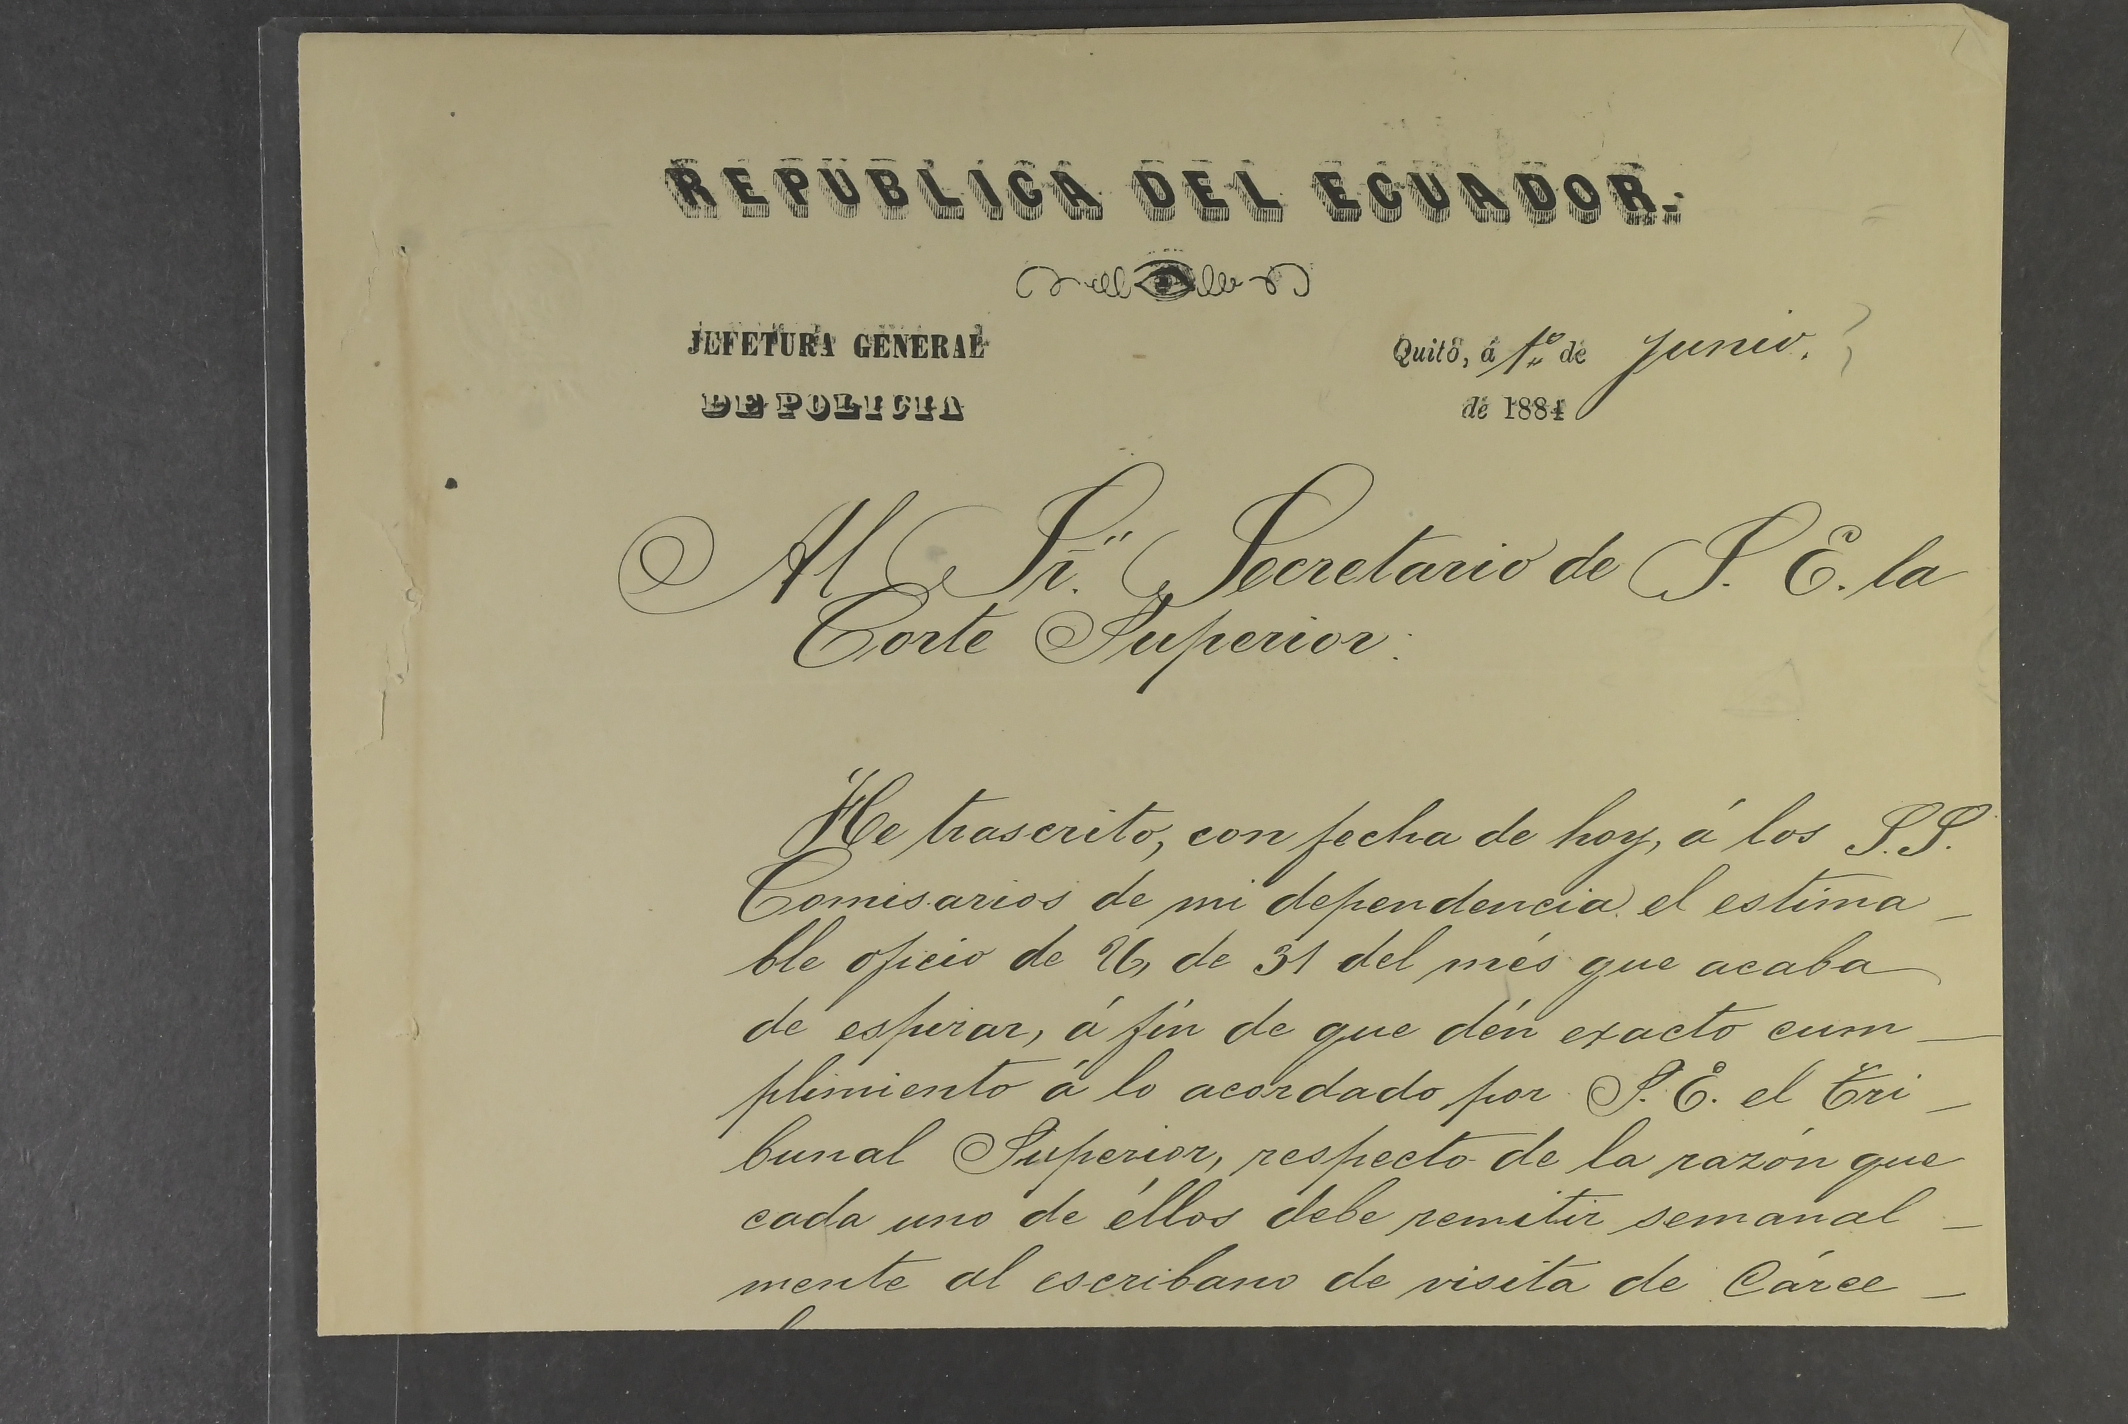 REPUBLICA DEL ECUADOR.
JEFETURA GENERAL
DE POLICIA
Quito, á 1º de Junio.
de 1884
Al Sr. Secretario de S. E. la
Corte Superior:
He trascrito, con fecha de hoy, á los S.S.
Comisarios de mi dependencia el estima_
ble oficio de U, de 31 del més que acaba
de espirar, á fin de que dén exacto cum_
plimiento á lo acordado por S. E. el Tri_
bunal Superior, respecto de la razón que
cada uno de éllos debe remitir semanal_
mente al escribano de visita de Cárce_